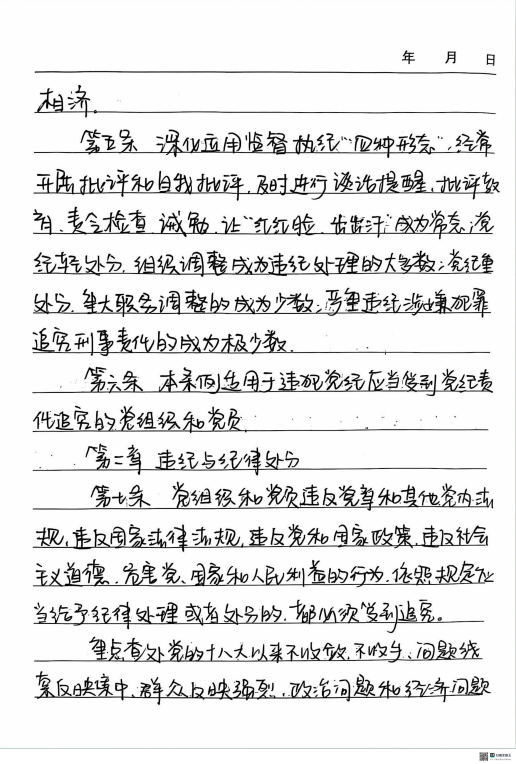 年 月 日
相济。
第五条 深化运用监督执纪“四种形态”，经常
开展批评和自我批评，及时进行谈话提醒、批评教
育、责令检查、诫勉，让“红红脸、出出汗”成为常态；党
纪轻处分、组织调整成为违纪处理的大多数；党纪重
处分、重大职务调整的成为少数；严重违纪涉嫌犯罪
追究刑事责任的成为极少数。
第六条 本条例适用于违犯党纪应当受到党纪责
任追究的党组织和党员
第二章 违纪与纪律处分
第七条 党组织和党员违反党章和其他党内法
规，违反国家法律法规，违反党和国家政策，违反社会
主义道德，危害党、国家和人民利益的行为，依照规定应
当给予纪律处理或者处分的，都必须受到追究。
重点查处党的十八大以来不收敛、不收手，问题线
索反映集中、群众反映强烈，政治问题和经济问题